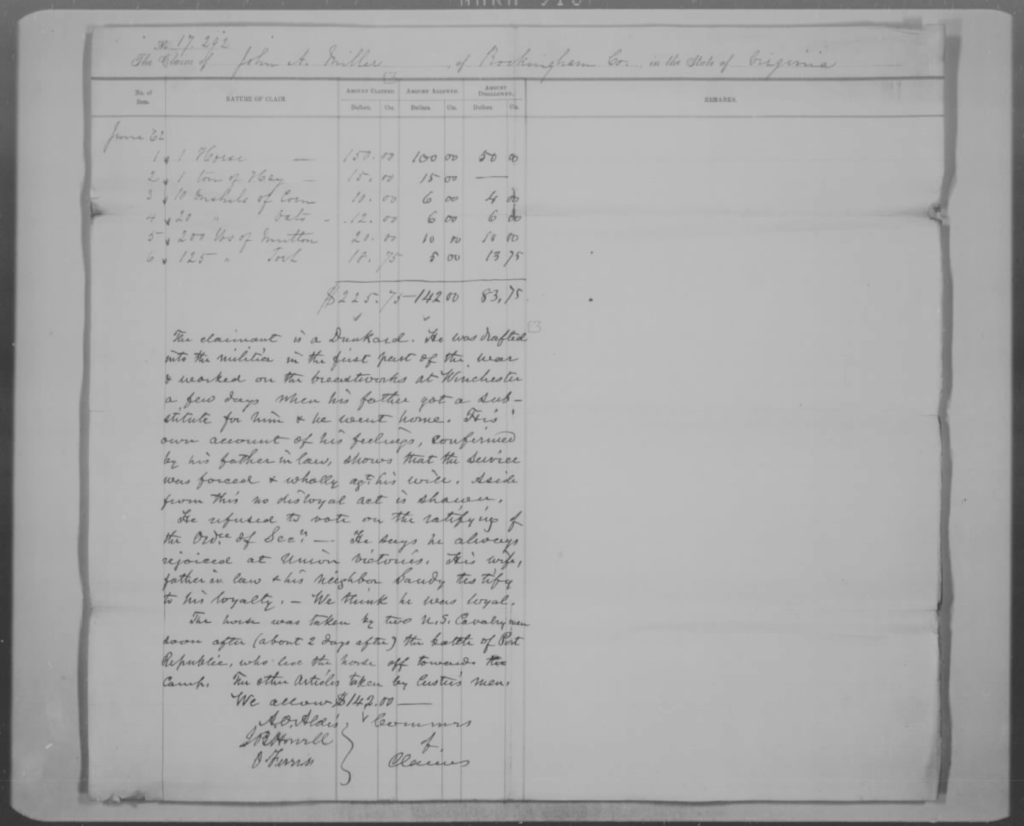 No. 17.292
The Claim of John A. Miller, of Rockingham Co. in the State of Virginia
No. of Item. NATURE OF CLAIM. AMOUNT CLAIMED. AMOUNT ALLOWED. AMOUNT DISALLOWED. REMARKS.
Dollars. Cts. Dollars. Cts. Dollars. Cts.
June 62
1 1 Horse — 150.00 100 00 50 00
2 1 ton of Hay — 15.00 15 00 —
3 10 Bushels of Corn 10.00 6 00 4 00
4 20 " Oats - 12.00 6 00 6 00
5 200 lbs of Mutton 20.00 10 00 10 00
6 125 " 18.75 5 00 13 75
$225.75 - 142 00 83.75
The claimant is a Dunkard. He was drafted
into the militia in the first part of the war
& worked on the breastworks at Winchester
a few days when his father got a sub-
stitute for him & he went home. His
own account of his feelings, confirmed
by his father in law, shows that the service
was forced & wholly agt. his will. Aside
from this no disloyal act is shown.
He refused to vote on the ratifying of
the Ordce of Secn. — He says he always
rejoiced at Union victories. His wife,
father in law & his neighbor Sandy testify
to his loyalty. — We think he was loyal.
The horse was taken by two U.S. Cavalrymen
soon after (about 2 days after) the battle of Port
Republic, who led the horse off towards the
Camp. The other Articles taken by Custer's men.
We allow $142.00 —
A.O. Aldis Commrs
J B Howell of
O Ferriss Claims